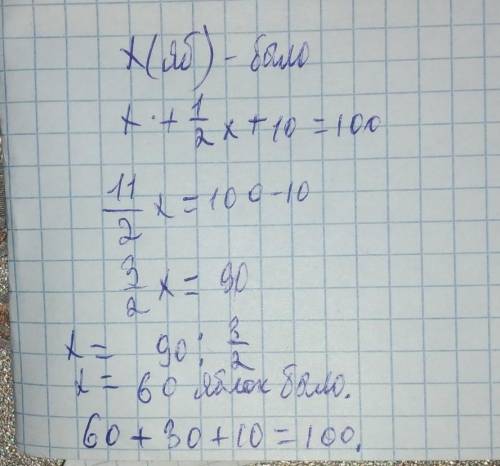 x(яб) - было
x + 1/2 x + 10 = 100
11/2 x = 100 - 10
3/2 x = 90
x = 90 : 3/2
x = 60 яблок было.
60 + 30 + 10 = 100.